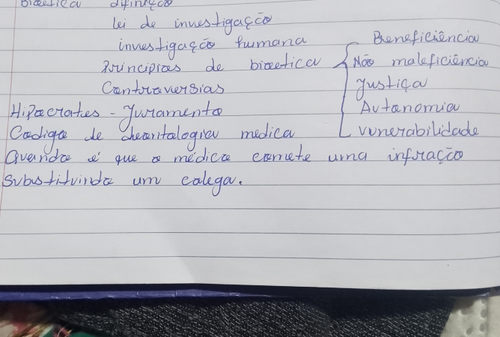 Bioetica definição
Lei de investigação
investigação humana
Princípios de bioetica { Beneficiência
Não maleficiência
Justiça
Autonomia
Vunerabilidade
Contraversias
Hipocrates - Juramento
Codigo de deontologia médica
Quando é que o médico comete uma infração
substituindo um colega.